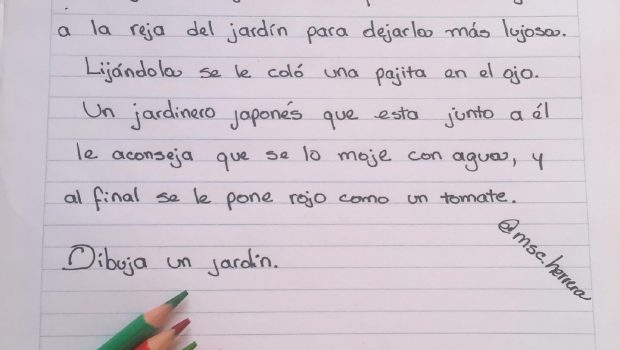 a la reja del jardín para dejarla más lujosa.
Lijándola se le coló una pajita en el ojo.
Un jardinero japonés que esta junto a él
le aconseja que se lo moje con agua, y
al final se le pone rojo como un tomate.
Dibuja un jardin.
@msc.herrera